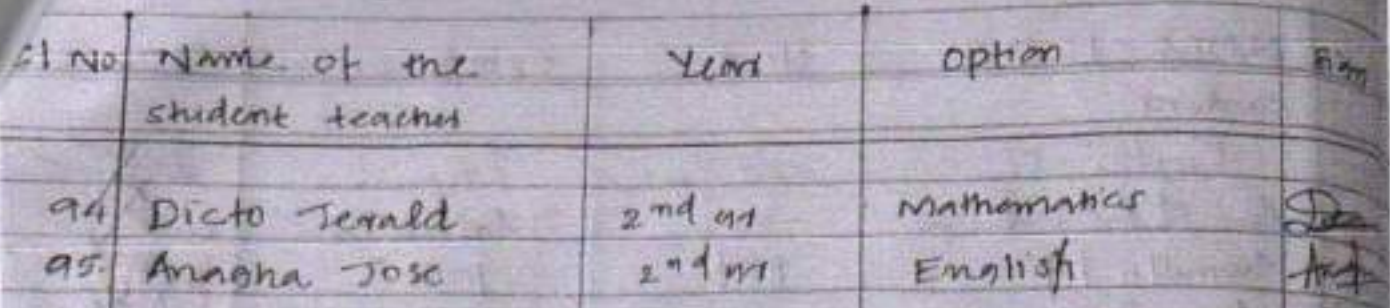 Sl No Name of the student teacher Year Option Sign
94 Dicto Jerald 2nd yr Mathematics
95. Anagha Jose 2nd yr English